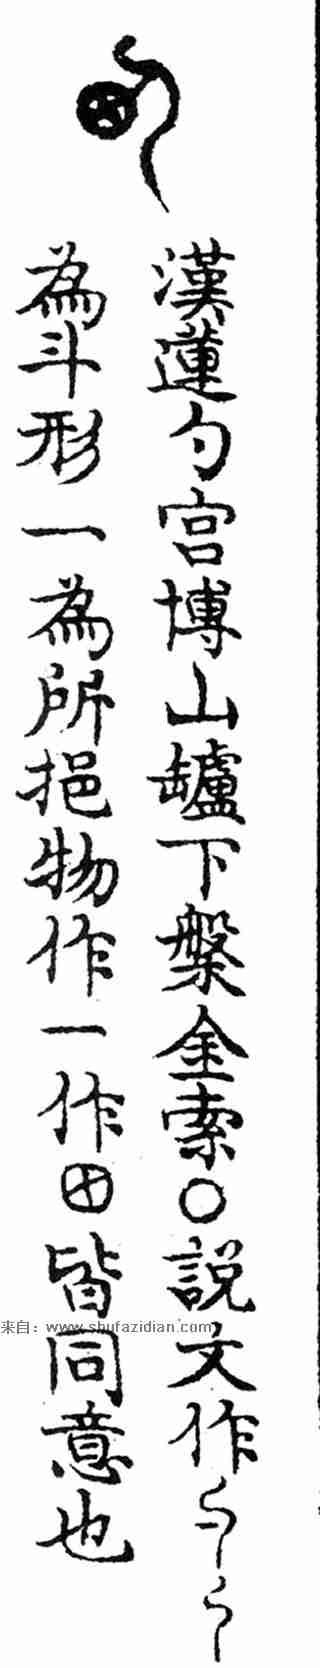 漢蓮勺宮博山罏下槃金索○說文作
為斗形一為所挹物作一作皆同意也
来自：www.shufazidian.com